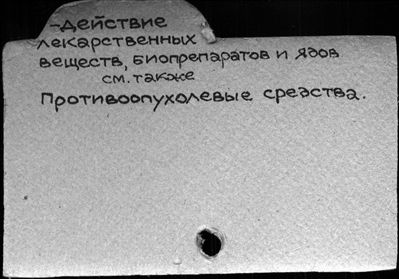 -Действие
лекарственных
веществ, биопрепаратов и ядов
см. также
Противоопухолевые средства.